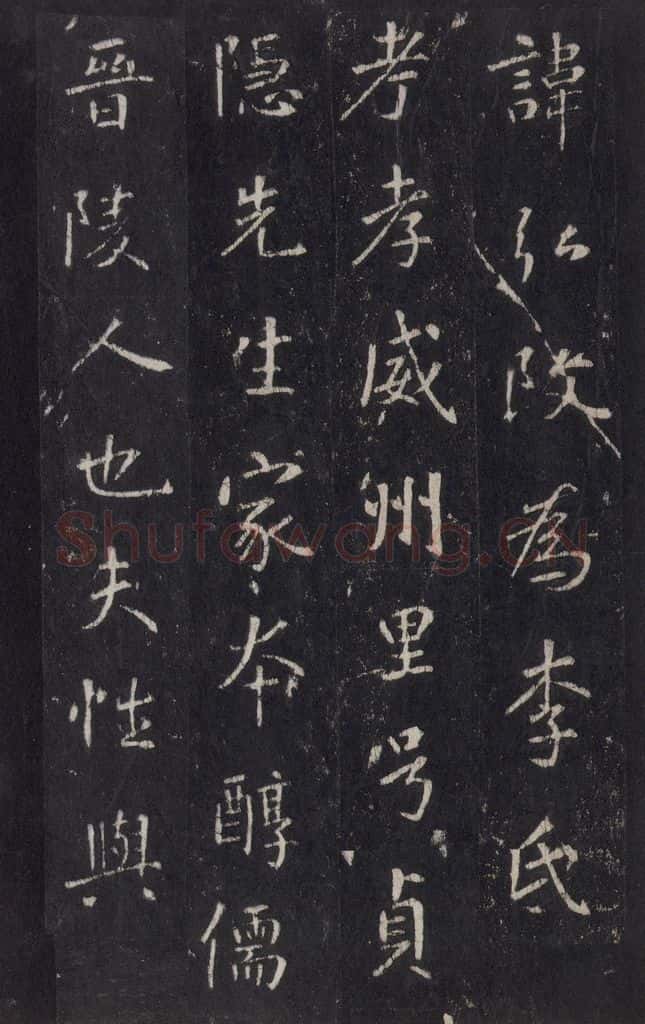 諱弘改為李氏
考孝威州里号貞
隱先生家本醇儒
晉陵人也夫性與
Shufawang.cn